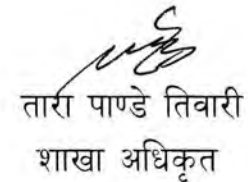 तारा पाण्डे तिवारी
शाखा अधिकृत